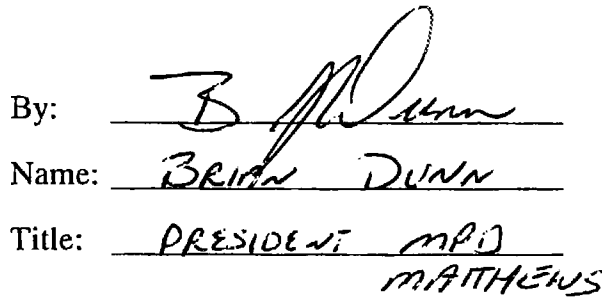 By: B Dunn
Name: BRIAN DUNN
Title: PRESIDENT MPD
MATTHEWS